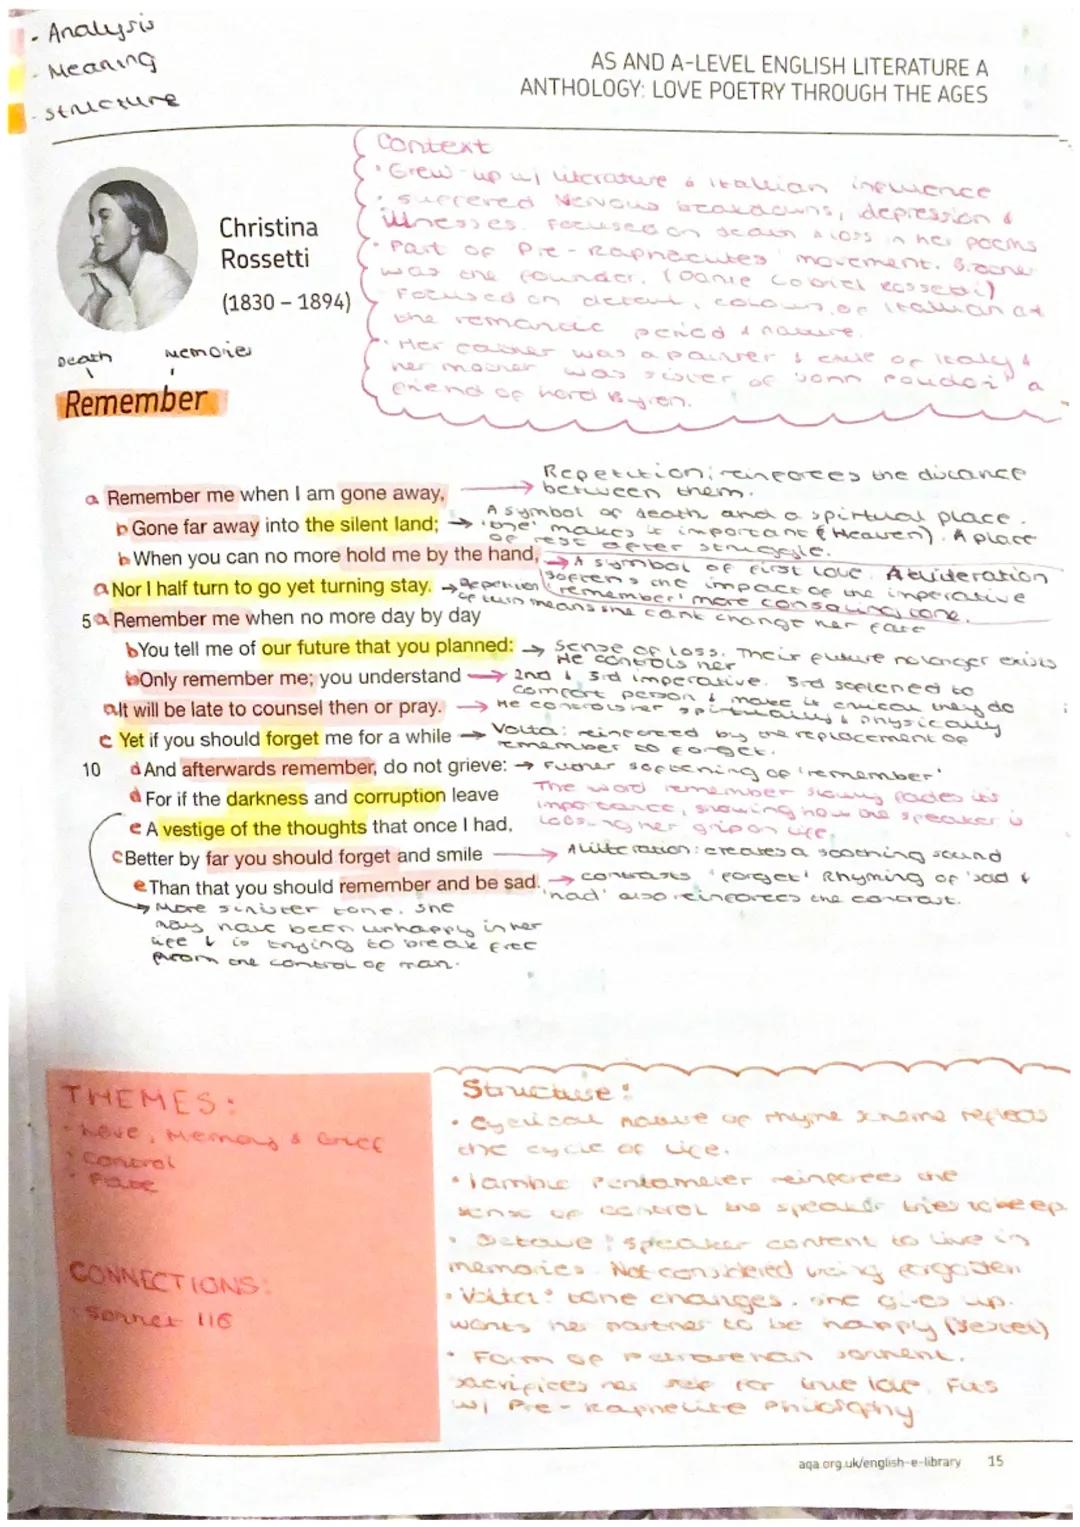 - Analysis
- Meaning
- structure
AS AND A-LEVEL ENGLISH LITERATURE A
ANTHOLOGY: LOVE POETRY THROUGH THE AGES
Christina
Rossetti
(1830 – 1894)
Context
• Grew-up w/ literature & itallian influence
• suffered Nervous breakdowns, depression &
illnesses. Focused on death & loss in her poems
• Part of Pre-Raphaelites movement.
was the founder.
Focused on detail, colours of itallian art
the romantic period & nature.
• Her father was a painter & exile of Italy &
her mother was sister of a
friend of Lord Byron.
Death
Memories
Remember
a Remember me when I am gone away,
Repetition; reinforces the distance
between them.
b Gone far away into the silent land;
A symbol of death and a spirtual place.
'the' makes it important (Heaven). A place
of rest after struggle.
b When you can no more hold me by the hand,
A symbol of first love.
softens the impact of the imperative
'remember' more consoling tone.
a Nor I half turn to go yet turning stay.
repetition
of turn means she cant change her fate
5 a Remember me when no more day by day
b You tell me of our future that you planned:
Sense of loss. Their future no longer exists
He controls her
b Only remember me; you understand
2nd & 3rd imperative. 3rd softened to
comfort person & make it crucial they do
a It will be late to counsel then or pray.
He controls her spiritually & physically
c Yet if you should forget me for a while
Volta: reinforced by the replacement of
remember to forget.
10 d And afterwards remember, do not grieve:
Further softening of 'remember'
d For if the darkness and corruption leave
The word remember slowly fades its
importance, showing how the speaker is
loosing her grip on life.
e A vestige of the thoughts that once I had,
c Better by far you should forget and smile
Alliteration: creates a soothing sound
e Than that you should remember and be sad.
contrasts 'forget' Rhyming of 'sad &
'had' also reinforces the contrast.
More sinister tone. She
may have been unhappy in her
life & is trying to break free
from the control of man.
THEMES:
• Love, Memory & Grief
• Control
• Fate
CONNECTIONS:
• Sonnet 116
Structure:
• Cyclical nature of rhyme scheme reflects
the cycle of life.
• Iambic Pentameter reinforces the
sense of control the speaker tries to keep
• Octave: speaker content to live in
memories. Not considered being forgotten
• Volta: tone changes. she gives up.
wants her partner to be happy (sestet)
• Form of Petrarchan sonnent.
sacrifices her self for true love. Fits
w/ Pre-Raphelite Philosophy
aqa.org.uk/english-e-library 15